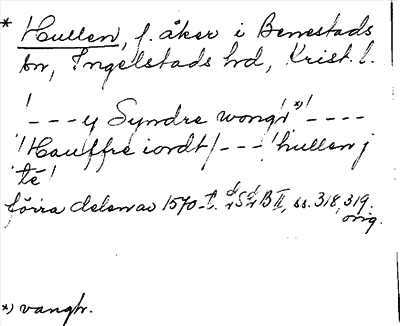 * Hullen, f. åker i Benestads
sn, Ingelstads hd, Krist. l.
!--- y Syndre wongr *)!----
!Hauffre iordt/--- !hullen j
té!
förra delen av 1570-t. S B II, ss. 318, 319.
orig.
*) vangr.